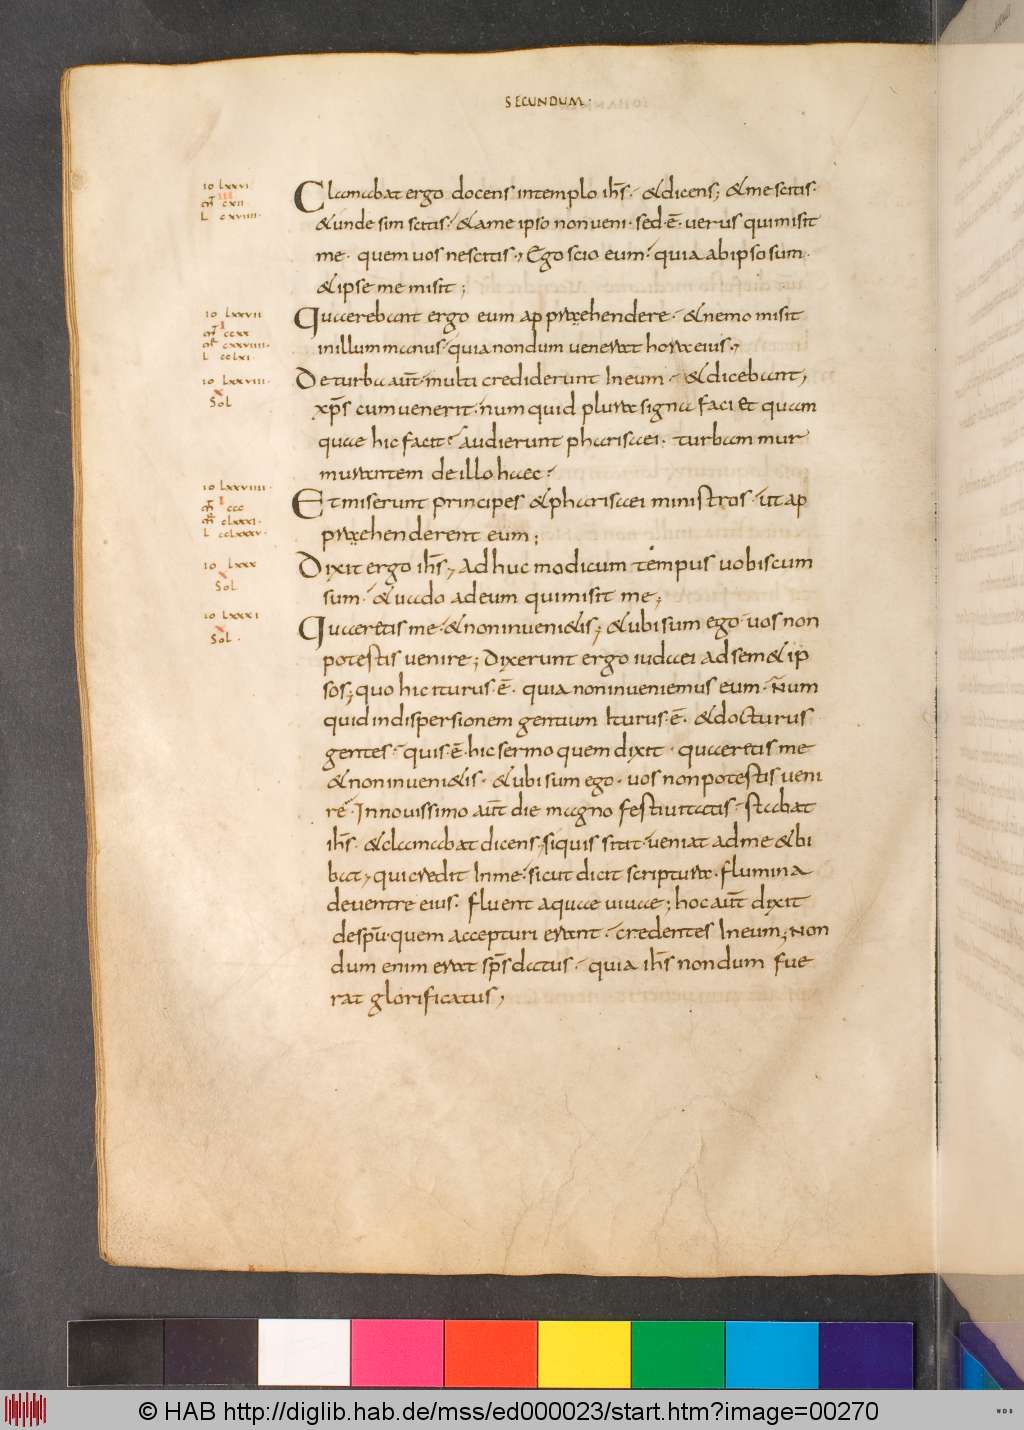 SECUNDUM·
Io LXXVI
III
M̄ CXII
L CXVIIII·
Clamabat ergo docens intemplo ih̄s· &dicens; &me scitis·
&unde sim scitis· &ame ipso non veni· sed·ē· verus qui misit
me· quem vos nescitis·, Ego scio eum· quia abipso sum·
&ipse me misit;
Io LXXVII
I
M̄ CCXX
M̄ CXXVIIII·
L CCLXI·
Quaerebant ergo eum apprȩhendere· &nemo misit
inillum manus· quia nondum venerat hora eius·,
Io LXXVIII·
X
Sol
Deturba aut̄· multi crediderunt Ineum· &dicebant,
xp̄s cum venerit· numquid plura signa faciet quam
quae hic facit? audierunt pharisaei· turbam mur
murantem de illo haec·
Io LXXVIIII·
I
M̄ CCC
M̄ CLXXXI·
L CCLXXXV·
Et miserunt principes &pharisaei ministros· ut ap
prȩhenderent eum;
Io LXXX
X
Sol
Dixit ergo ih̄s, adhuc modicum tempus vobiscum
sum· &vado adeum qui misit me;
Io LXXXI
X
Sol·
Quaeretis me· &non inveni&is; &ubi sum ego· vos non
potestis venire; Dixerunt ergo iudaei adsem&ip
sos; quo hic iturus·ē· quia non inveniemus eum· Nūm
quid indispersionem gentium Iturus·ē· &docturus
gentes· quis·ē· hic sermo quem dixit· quaeretis me
&non inveni&is· &ubi sum ego· vos non potestis veni
re· In novissimo aut̄ die magno festivitatis· stabat
ih̄s· &clamabat dicens, siquis sitit· veniat adme &bi
bat, qui credit Inme· sicut dicit scriptura· flumina
deventre eius· fluent aquae vivae; hoc aut̄ dixit
desp̄u· quem accepturi erant· credentes Ineum; Non
dum enim erat sp̄s datus· quia ih̄s nondum fue
rat glorificatus,
© HAB http://diglib.hab.de/mss/ed000023/start.htm?image=00270